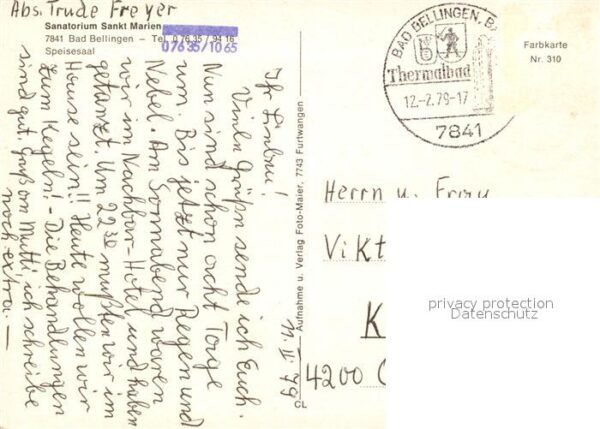 Abs. Trude Freyer
Sanatorium Sankt Marien
7841 Bad Bellingen – Tel. 0 76 35 / 94 16
07635/1065
Speisesaal
Ihr Lieben!
Viele Grüße sende ich Euch.
Nun sind schon acht Tage
um. Bis jetzt nur Regen und
Nebel. Am Sonnabend waren
wir im Nachbar-Hotel und haben
getanzt. Um 22³⁰ mußten wir im
Hause sein!! Heute wollen wir
zum Kegeln! - Die Behandlungen
sind gut. Gruß an Mutti, ich schreibe
noch extra. —
11. II. 79
Aufnahme u. Verlag Foto-Maier, 7743 Furtwangen
CL
BAD BELLINGEN, BA
Thermalbad
12.-2.79-17
7841
Farbkarte
Nr. 310
Herrn u. Frau
Vikt
K
4200
privacy protection
Datenschutz